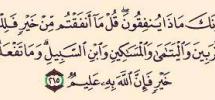 نَكَ مَاذَا يُنفِقُونَ ۖ قُلْ مَا أَنفَقْتُم مِّنْ خَيْرٍ فَلِلْ
رَبِينَ وَالْيَتَامَىٰ وَالْمَسَاكِينِ وَابْنِ السَّبِيلِ ۗ وَمَا تَفْعَلُ
خَيْرٍ فَإِنَّ اللَّهَ بِهِ عَلِيمٌ ٢١٥